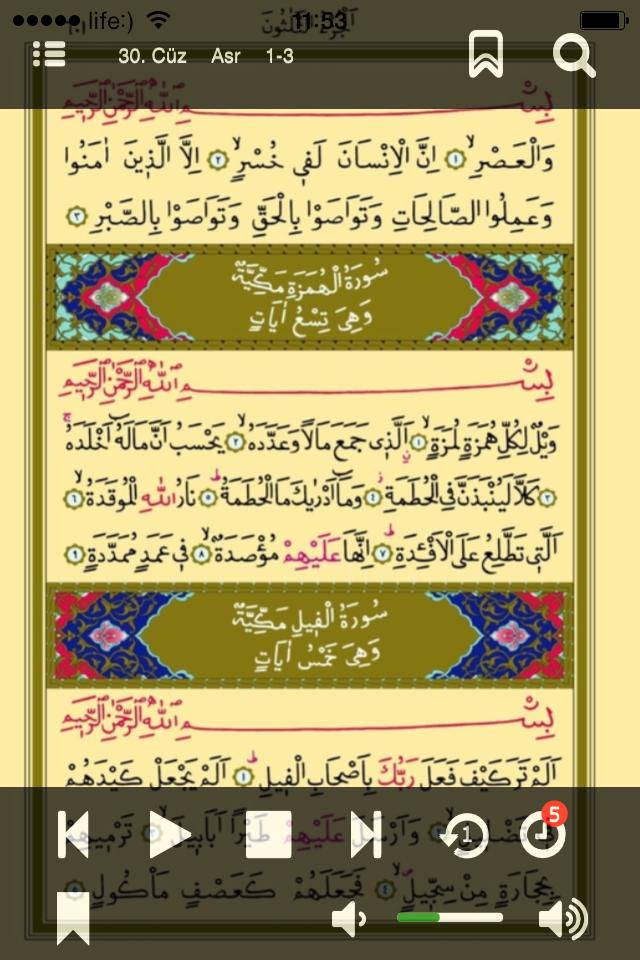 life:) 11:53
الجزء الثلاثون
30. Cüz Asr 1-3
بِسْمِ اللّٰهِ الرَّحْمٰنِ الرَّحٖيمِ
وَالْعَصْرِۙ ﴿١﴾ اِنَّ الْاِنْسَانَ لَفٖي خُسْرٍۙ ﴿٢﴾ اِلَّا الَّذٖينَ اٰمَنُوا
وَعَمِلُوا الصَّالِحَاتِ وَتَوَاصَوْا بِالْحَقِّ وَتَوَاصَوْا بِالصَّبْرِ ﴿٣﴾
سُورَةُ الْهُمَزَةِ مَكِّيَّةٌ
وَهِيَ تِسْعُ اٰيَاتٍ
بِسْمِ اللّٰهِ الرَّحْمٰنِ الرَّحٖيمِ
وَيْلٌ لِكُلِّ هُمَزَةٍ لُمَزَةٍۙ ﴿١﴾ اَلَّذٖي جَمَعَ مَالًا وَعَدَّدَهُۙ ﴿٢﴾ يَحْسَبُ اَنَّ مَالَهُٓ اَخْلَدَهُۚ
﴿٣﴾ كَلَّا لَيُنْبَذَنَّ فِي الْحُطَمَةِۘ ﴿٤﴾ وَمَٓا اَدْرٰيكَ مَا الْحُطَمَةُۜ ﴿٥﴾ نَارُ اللّٰهِ الْمُوقَدَةُۙ ﴿٦﴾
اَلَّتٖي تَطَّلِعُ عَلَى الْاَفْـِٔدَةِۜ ﴿٧﴾ اِنَّهَا عَلَيْهِمْ مُؤْصَدَةٌۙ ﴿٨﴾ فٖي عَمَدٍ مُمَدَّدَةٍ ﴿٩﴾
سُورَةُ الْفٖيلِ مَكِّيَّةٌ
وَهِيَ خَمْسُ اٰيَاتٍ
بِسْمِ اللّٰهِ الرَّحْمٰنِ الرَّحٖيمِ
اَلَمْ تَرَ كَيْفَ فَعَلَ رَبُّكَ بِاَصْحَابِ الْفٖيلِۜ ﴿١﴾ اَلَمْ يَجْعَلْ كَيْدَهُمْ
فٖي تَضْلٖيلٍۙ ﴿٢﴾ وَاَرْسَلَ عَلَيْهِمْ طَيْرًا اَبَابٖيلَۙ ﴿٣﴾ تَرْمٖيهِمْ
بِحِجَارَةٍ مِنْ سِجّٖيلٍۙ ﴿٤﴾ فَجَعَلَهُمْ كَعَصْفٍ مَأْكُولٍ ﴿٥﴾
1
5